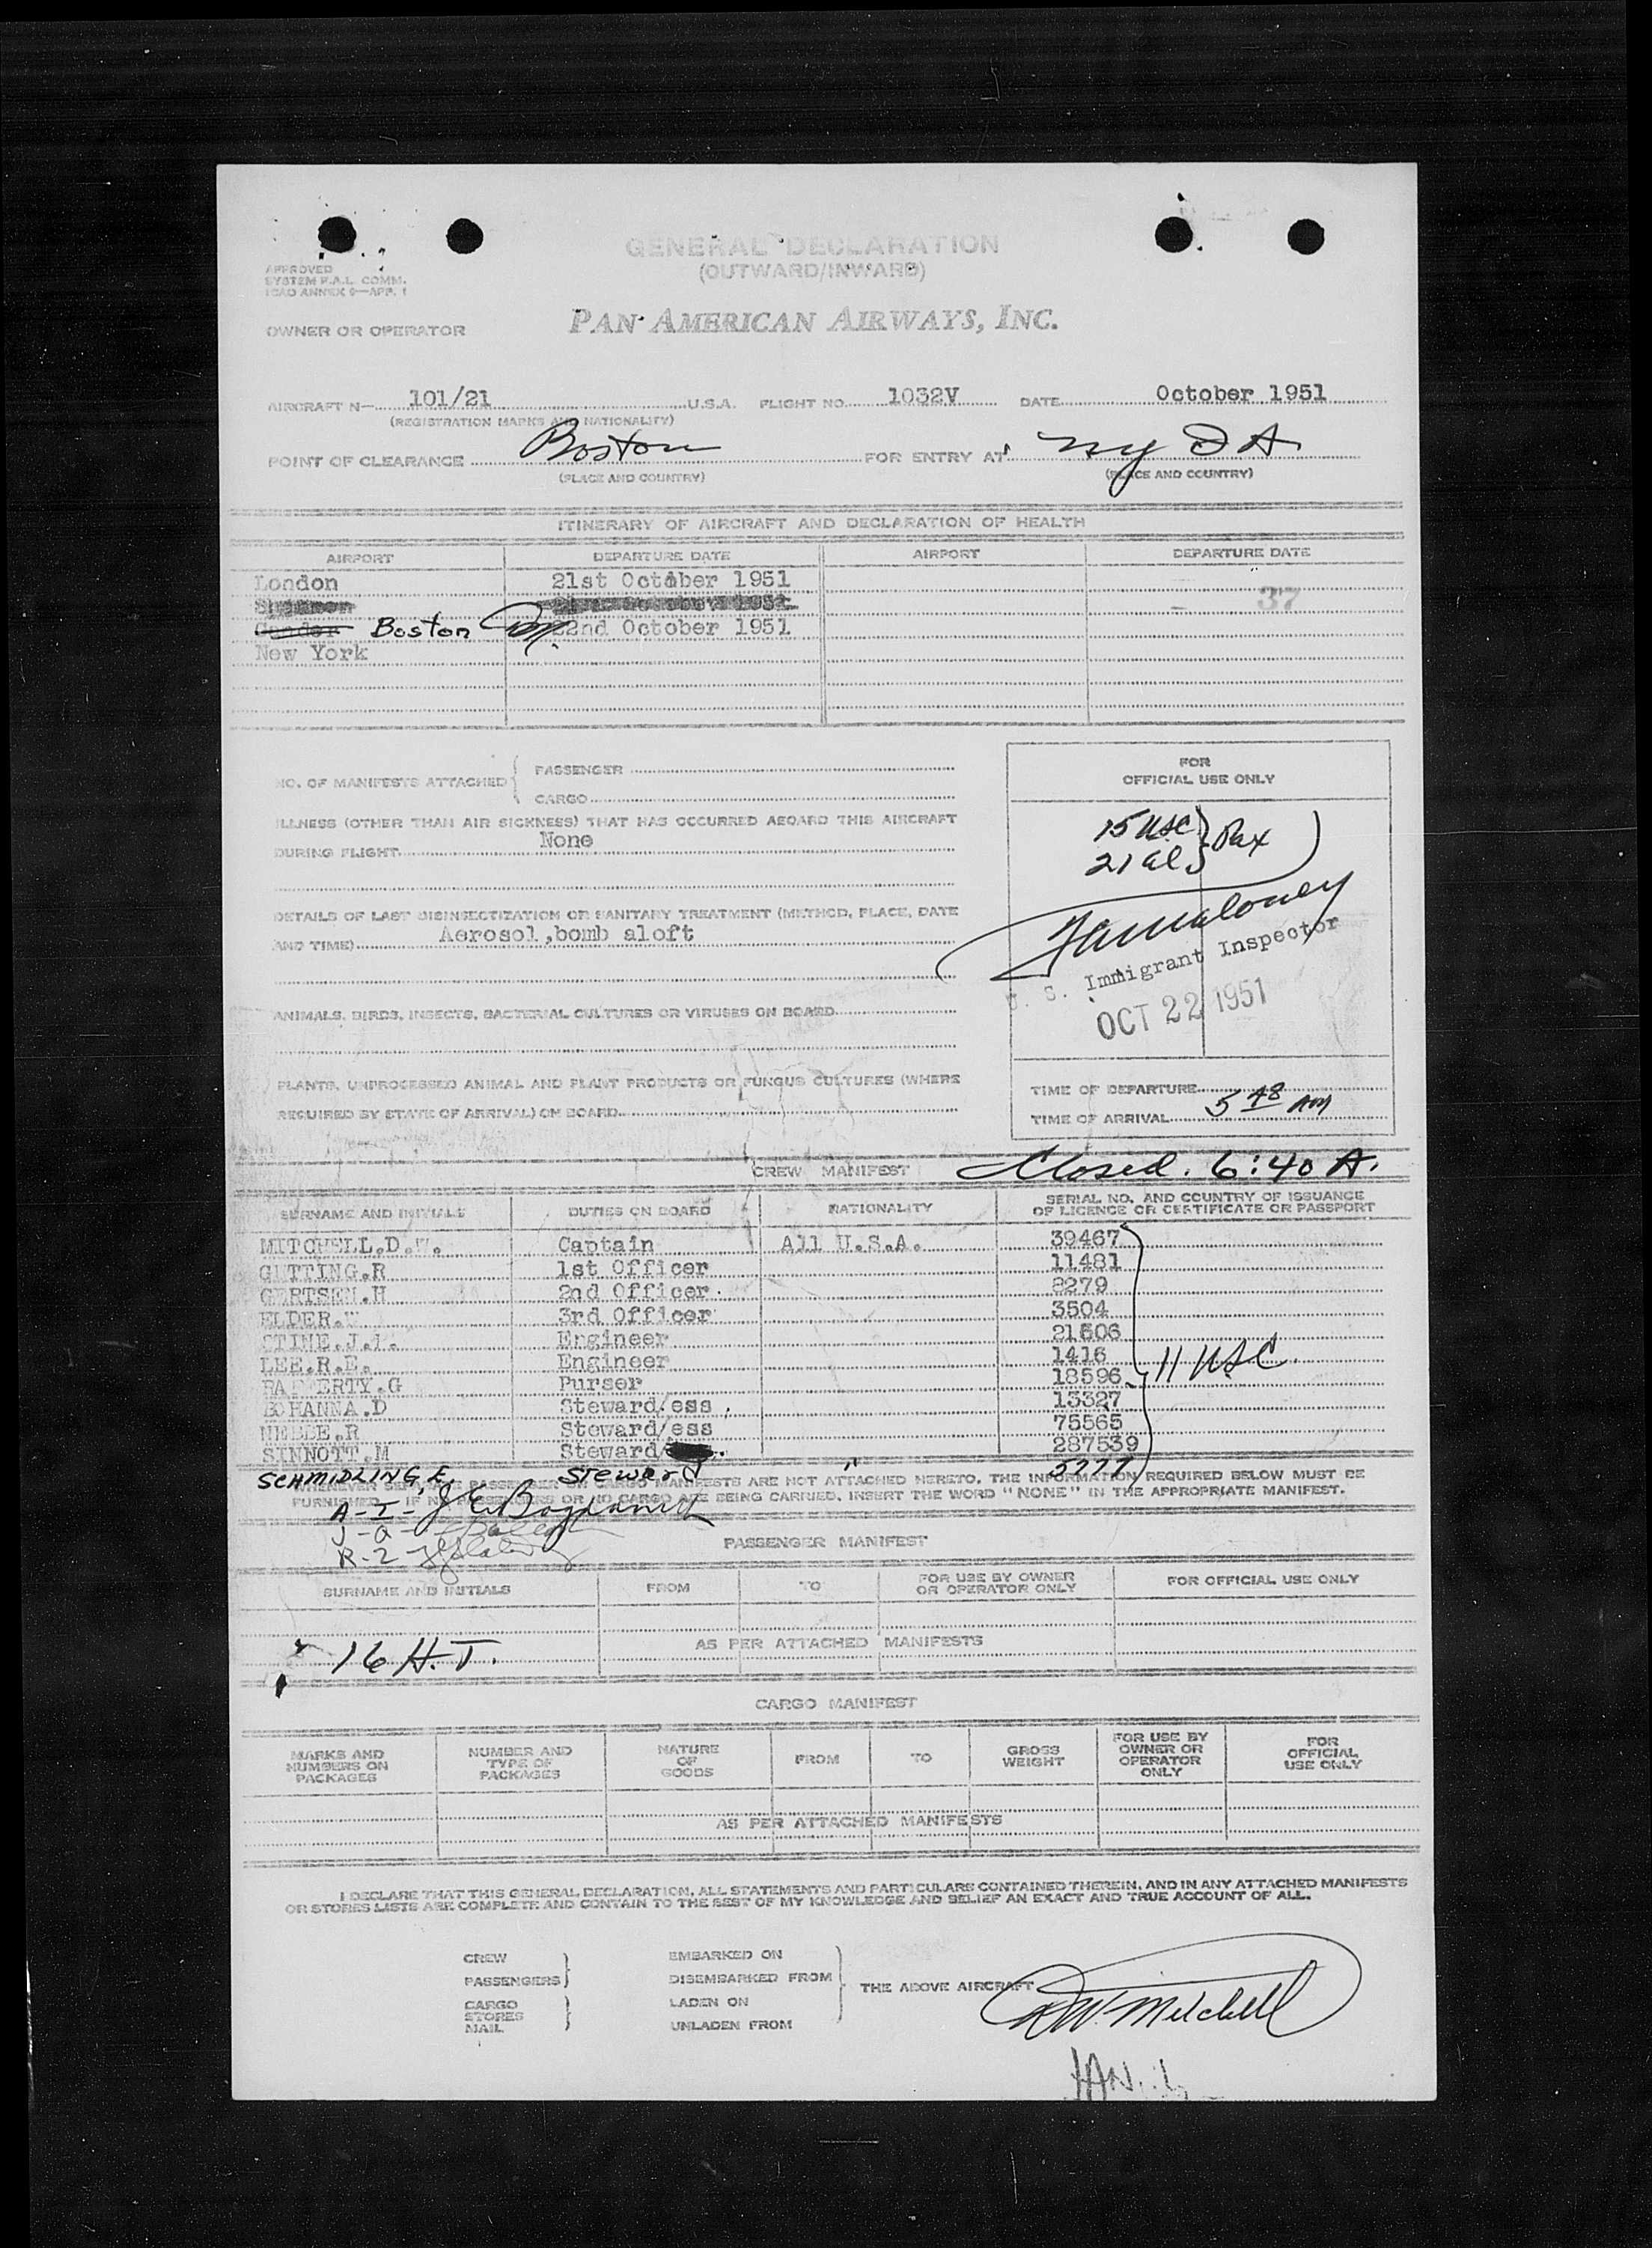 GENERAL DECLARATION
(OUTWARD/INWARD)
APPROVED
SYSTEM P.A.L. COMM.
ICAO ANNEX 9—APP. 1
OWNER OR OPERATOR PAN AMERICAN AIRWAYS, INC.
AIRCRAFT N— 101/21 U.S.A. FLIGHT NO. 1032V DATE October 1951
(REGISTRATION MARKS AND NATIONALITY)
POINT OF CLEARANCE Boston FOR ENTRY AT NY
(PLACE AND COUNTRY) (PLACE AND COUNTRY)
ITINERARY OF AIRCRAFT AND DECLARATION OF HEALTH
AIRPORT DEPARTURE DATE AIRPORT DEPARTURE DATE
London 21st October 1951
37
Boston 22nd October 1951
New York
NO. OF MANIFESTS ATTACHED PASSENGER
CARGO
FOR
OFFICIAL USE ONLY
ILLNESS (OTHER THAN AIR SICKNESS) THAT HAS OCCURRED ABOARD THIS AIRCRAFT
DURING FLIGHT None
15 USC
21 al Pax
DETAILS OF LAST DISINSECTIZATION OR SANITARY TREATMENT (METHOD, PLACE, DATE
AND TIME) Aerosol,bomb aloft
U. S. Immigrant Inspector
OCT 22 1951
ANIMALS, BIRDS, INSECTS, BACTERIAL CULTURES OR VIRUSES ON BOARD
PLANTS, UNPROCESSED ANIMAL AND PLANT PRODUCTS OR FUNGUS CULTURES (WHERE
REQUIRED BY STATE OF ARRIVAL) ON BOARD
TIME OF DEPARTURE
TIME OF ARRIVAL 5 48 AM
CREW MANIFEST Closed. 6:40 A.
SURNAME AND INITIALS DUTIES ON BOARD NATIONALITY SERIAL NO. AND COUNTRY OF ISSUANCE
OF LICENCE OR CERTIFICATE OR PASSPORT
MITCHELL.D.W. Captain All U.S.A. 39467
GUTTING.R 1st Officer 11481
GERTSEN.H 2nd Officer 8279
ELDER.W 3rd Officer 3504
STINE.J. Engineer 21506
LEE.R.E. Engineer 1416 11 USC.
RAFFERTY.G Purser 18596
BOHANNA.D Steward/ess 13327
Steward/ess 75565
SINNOTT.M Steward/ 287539
SCHMIDLING, E. Steward " 5777
WHENEVER SEPARATE PASSENGER OR CARGO MANIFESTS ARE NOT ATTACHED HERETO, THE INFORMATION REQUIRED BELOW MUST BE
FURNISHED. IF NO PASSENGERS OR NO CARGO ARE BEING CARRIED, INSERT THE WORD "NONE" IN THE APPROPRIATE MANIFEST.
A-I-
J-a-
R-2-
PASSENGER MANIFEST
SURNAME AND INITIALS FROM TO FOR USE BY OWNER
OR OPERATOR ONLY FOR OFFICIAL USE ONLY
16 H.T. AS PER ATTACHED MANIFESTS
CARGO MANIFEST
MARKS AND
NUMBERS ON
PACKAGES
NUMBER AND
TYPE OF
PACKAGES
NATURE
OF
GOODS
FROM
TO
GROSS
WEIGHT
FOR USE BY
OWNER OR
OPERATOR
ONLY
FOR
OFFICIAL
USE ONLY
AS PER ATTACHED MANIFESTS
I DECLARE THAT THIS GENERAL DECLARATION, ALL STATEMENTS AND PARTICULARS CONTAINED THEREIN, AND IN ANY ATTACHED MANIFESTS
OR STORES LISTS ARE COMPLETE AND CONTAIN TO THE BEST OF MY KNOWLEDGE AND BELIEF AN EXACT AND TRUE ACCOUNT OF ALL.
CREW EMBARKED ON
PASSENGERS DISEMBARKED FROM THE ABOVE AIRCRAFT DW. Mitchell
CARGO LADEN ON
STORES
MAIL UNLADEN FROM